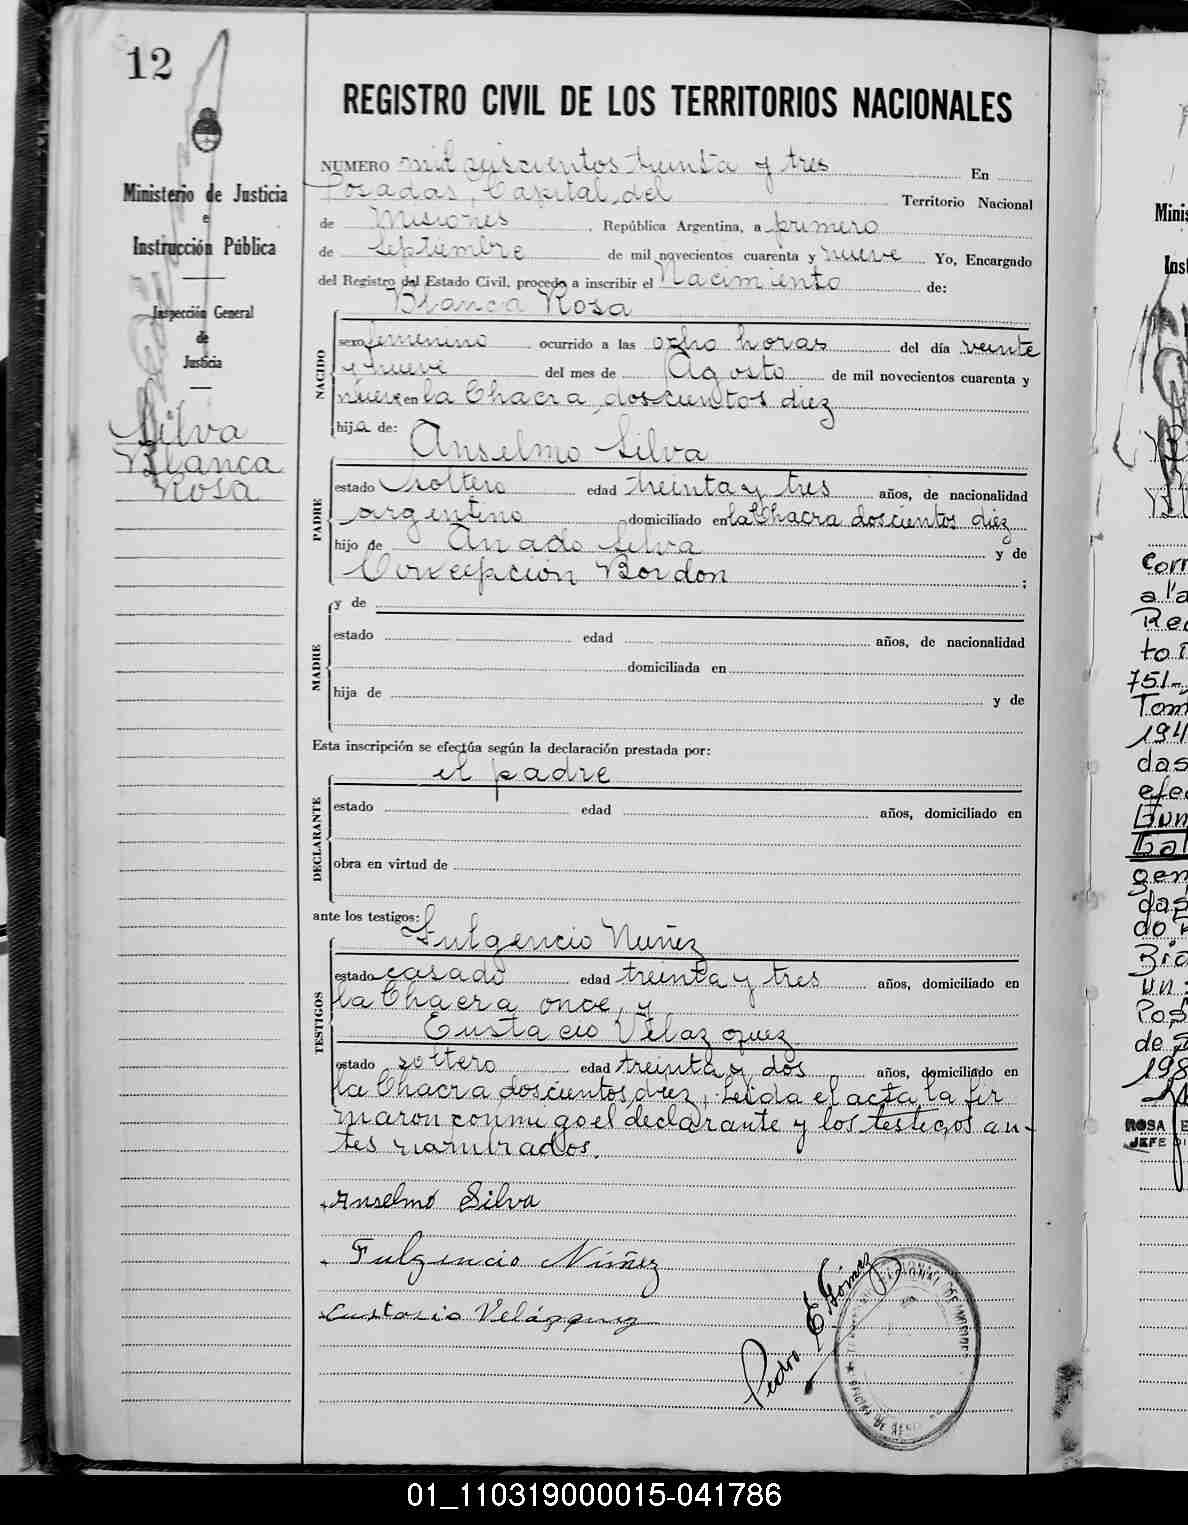 12
Ministerio de Justicia
e
Instrucción Pública
Inspección General
de
Justicia
Silva
Blanca
Rosa
REGISTRO CIVIL DE LOS TERRITORIOS NACIONALES
NUMERO mil seiscientos treinta y tres En
Posadas, Capital del Territorio Nacional
de Misiones, República Argentina, a primero
de Septiembre de mil novecientos cuarenta y nueve Yo, Encargado
del Registro del Estado Civil, procedo a inscribir el Nacimiento de:
Blanca Rosa
NACIDO
sexo femenino ocurrido a las ocho horas del día veinte
y nueve del mes de Agosto de mil novecientos cuarenta y
nueve en la Chacra doscientos diez
hija de:
Anselmo Silva
PADRE
estado soltero edad treinta y tres años, de nacionalidad
argentino domiciliado en la Chacra doscientos diez
hijo de Anado Silva y de
Concepción Bordon;
MADRE
y de
estado edad años, de nacionalidad
domiciliada en
hija de y de
Esta inscripción se efectúa según la declaración prestada por:
el padre
DECLARANTE
estado edad años, domiciliado en
obra en virtud de
ante los testigos:
Fulgencio Nuñez
TESTIGOS
estado casado edad treinta y tres años, domiciliado en
la Chacra once, y
Eustacio Velazquez
estado soltero edad treinta y dos años, domiciliado en
la Chacra doscientos diez, Leida el acta, la fir
maron conmigo el declarante y los testigos an-
tes nombrados.
Anselmo Silva
Fulgencio Núñez
Eustacio Velázquez
Pedro E Gómez
Minis
Ins
Corr
a l'a
Re
to
751-
Tom
194
das
efe
gen
das
do
un
Pos
de
198
ROSA E
JEFE DI
01_110319000015-041786